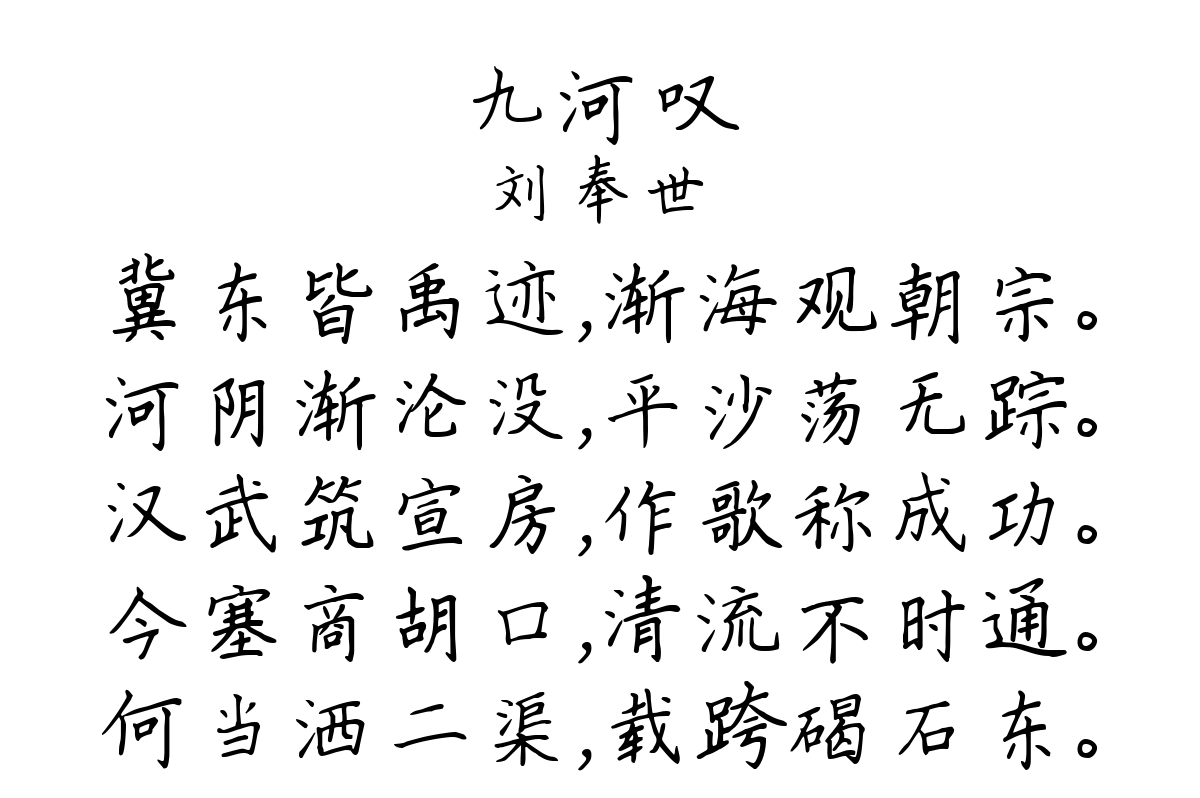 九河叹
刘奉世
冀东皆禹迹,渐海观朝宗。
河阴渐沦没,平沙荡无踪。
汉武筑宣房,作歌称成功。
今塞商胡口,清流不时通。
何当洒二渠,载跨碣石东。